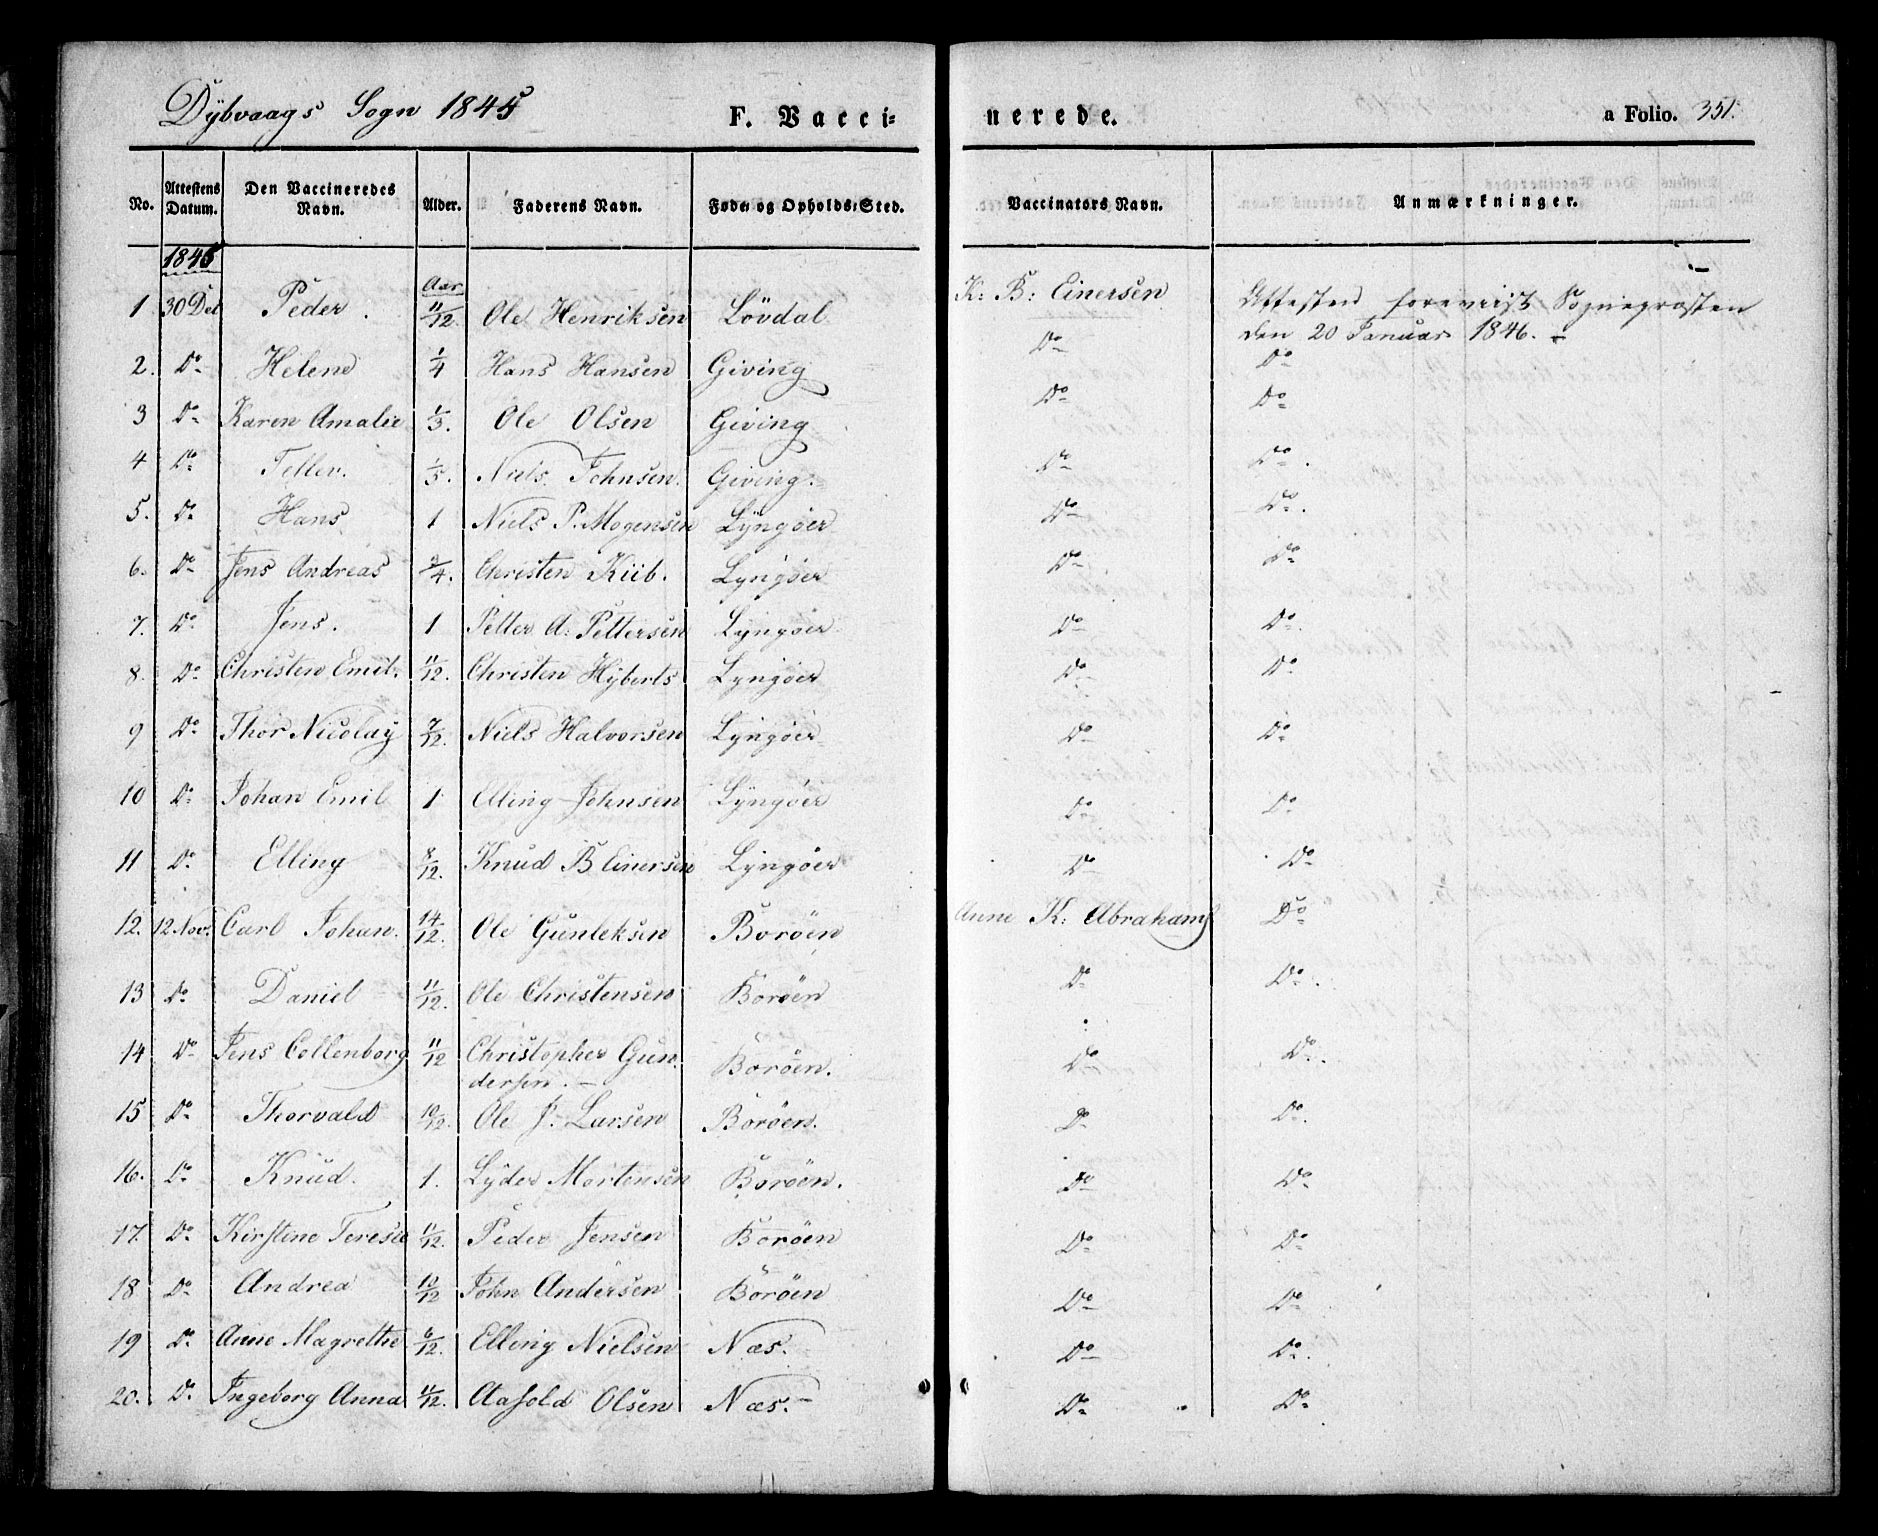 Dybvaags Sogn 1845 F. Vaccinerede. a Folio. 351.
No. Attestens Datum. Den Vaccineredes Navn. Alder. Faderens Navn. Føde og Opholds-Sted. Vaccinators Navn. Anmærkninger.
1845 Aar
1 30 Det Peder. 11/12. Ole Henriksen Lövdal K: B: Einersen Attesten foreviist Sogneprosten
den 20 Januar 1846. –
2. Do Helene 1/4 Hans Hansen Giving Do Do
3 Do Karen Amalie 1/3. Ole Olsen Giving Do Do
4 Do Tellev. 1/5. Niels Johnsen. Giving. Do Do.
5. Do Hans 1 Niels P. Mogensen Lyngöer Do Do.
6. Do Jens Andreas 3/4. Christen Kiib. Lyngöer Do Do
7. Do Jens. 1 Petter A: Pettersen Lyngöer Do Do.
8. Do Christen Emil. 11/12. Christen Hyberts Lyngöer Do Do
9 Do Thor Nicolay 7/12. Niels Halvorsen Lyngöer Do Do
10 Do Johan Emil 1 Elling Johnsen Lyngöer Do Do
11 Do Elling 8/12. Knud B Einersen Lyngöer Do Do
12. 12 Nov. Carl Johan. 14/12. Ole Gunleksen Boröen Anne K: Abrahams Do
13 Do Daniel 11/12. Ole Christensen Boröen Do Do.
14 Do Jens Collenborg 11/12 Christopher Gun-
dersen. – Boröen. Do Do.
15 Do Thorvald 10/12. Ole J. Larsen Boröen. Do Do.
16. Do Knud. 1. Lyder Mortensen Boröen. Do Do
17. Do Kirstine Teresie 11/12. Peder Jensen Boröen Do Do
18 Do Andrea 10/12 John Andersen Boröen Do Do
19 Do Anne Magrethe 6/12. Elling Nielsen Næs. Do Do.
20. Do Ingeborg Anna 11/12. Aasold Olsen Næs. – Do Do